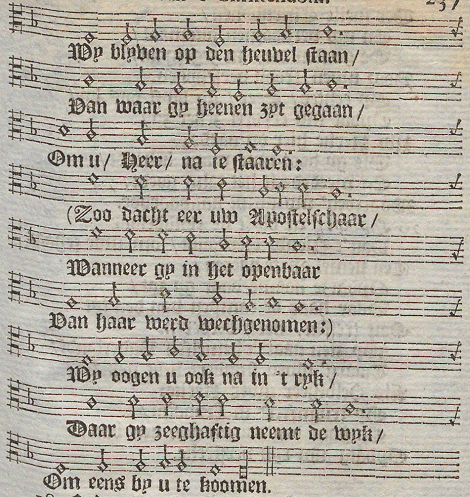 237
Wy blyven op den heuvel staan/
Van waar gy heenen zyt gegaan/
Om u/ Heer/ na te staaren:
(Zoo dacht eer uw Apostelschaar/
Wanneer gy in het openbaar
Van haar werd wechgenomen:)
Wy oogen u ook na in 't ryk/
Daar gy zeeghaftig neemt de wyk/
Om eens by u te koomen.